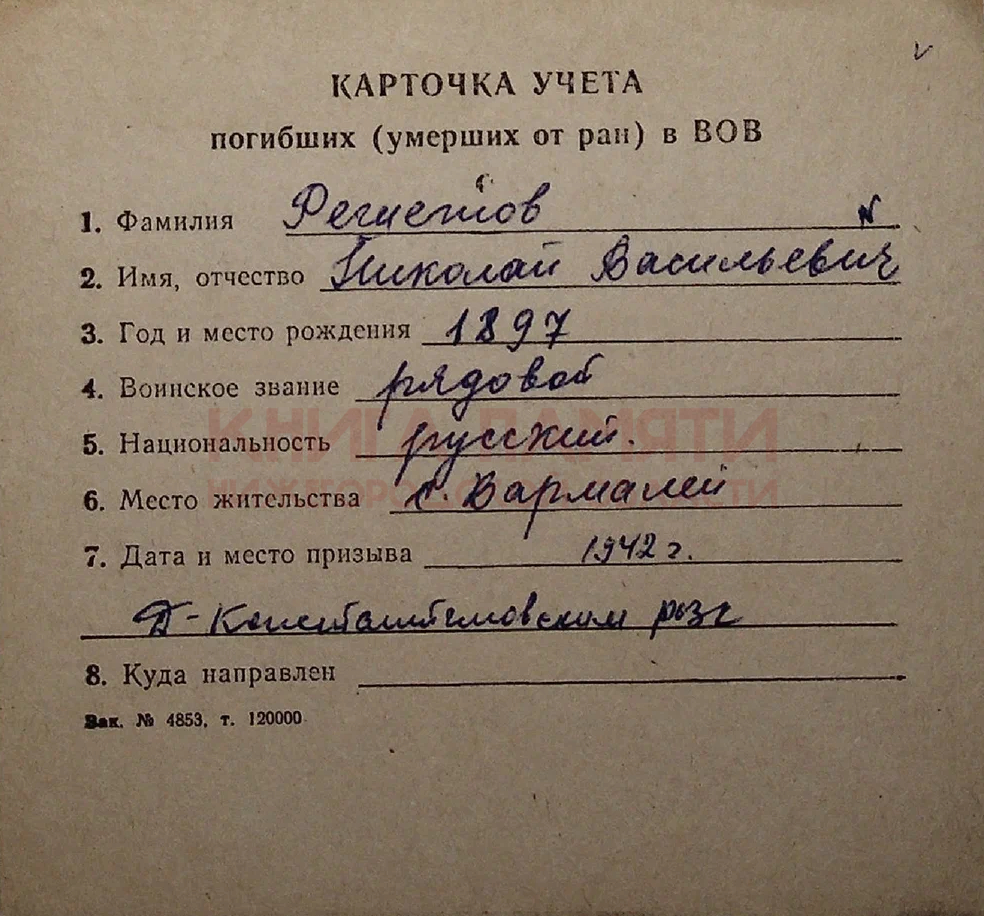 КАРТОЧКА УЧЕТА
погибших (умерших от ран) в ВОВ
1. Фамилия
2. Имя, отчество Николай Васильевич
3. Год и место рождения 1897
4. Воинское звание рядовой
КНИГА ПАМЯТИ
5. Национальность русский.
НИЖЕГОРОДСКОЙ ОБЛАСТИ
6. Место жительства с. Вармалей
7. Дата и место призыва 1942 г.
Д-Константиновским рвк
8. Куда направлен
Зак. № 4853, т. 120000